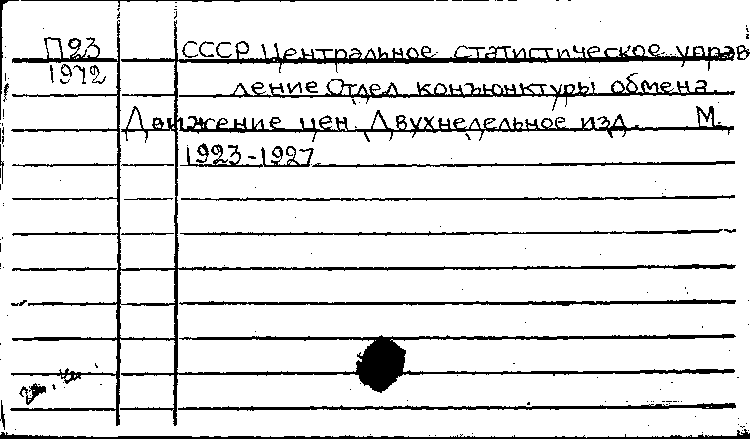 П23 СССР Центральное статистическое управ
1972 ление Отдел конъюнктуры обмена.
Движение цен. Двухнедельное изд. М.
1923-1927